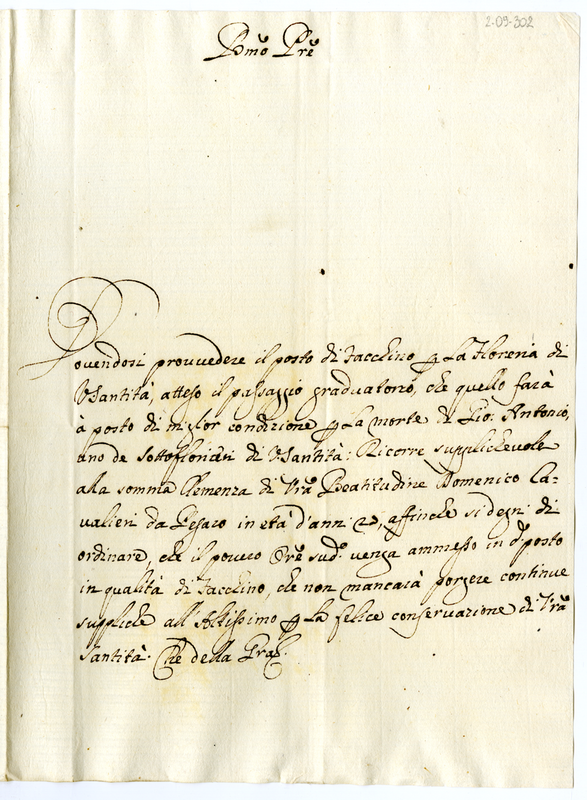 2-09-302
Bmo Pre
Dovendosi provvedere il posto di Facchino p La Floreria di
V Santità, atteso il passaggio graduatorio, che quello farà
à posto di miglior condizione p La morte di Gio: Antonio,
uno de Sottoflorieri di V Santità: Ricorre supplichevole
alla somma Clemenza di Vra Beatitudine Domenico Ca-
valieri da Pesaro in età d'anni, affinche si degni di
ordinare, che il povero Ore sud.o venga ammesso in do posto
in qualità di Facchino, che non mancarà porgere continue
suppliche all'Altissimo p La felice conservazione di Vra
Santità. Che della Gra